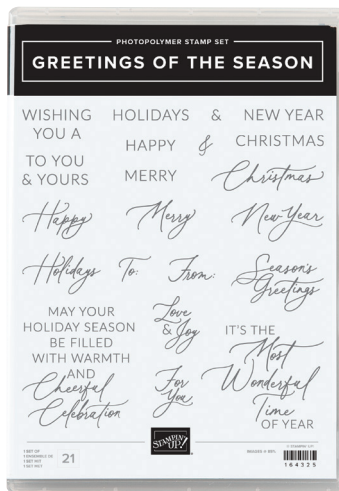 PHOTOPOLYMER STAMP SET
GREETINGS OF THE SEASON
WISHING
YOU A
HOLIDAYS & NEW YEAR
HAPPY & CHRISTMAS
TO YOU
& YOURS
MERRY
Christmas
Happy
Merry
New Year
Holidays
To:
From:
Season's
Greetings
MAY YOUR
HOLIDAY SEASON
BE FILLED
WITH WARMTH
AND
Cheerful
Celebration
Love
& Joy
For
You
IT'S THE
Most
Wonderful
Time
OF YEAR
STAMPIN' UP!
21
© STAMPIN' UP!
164325